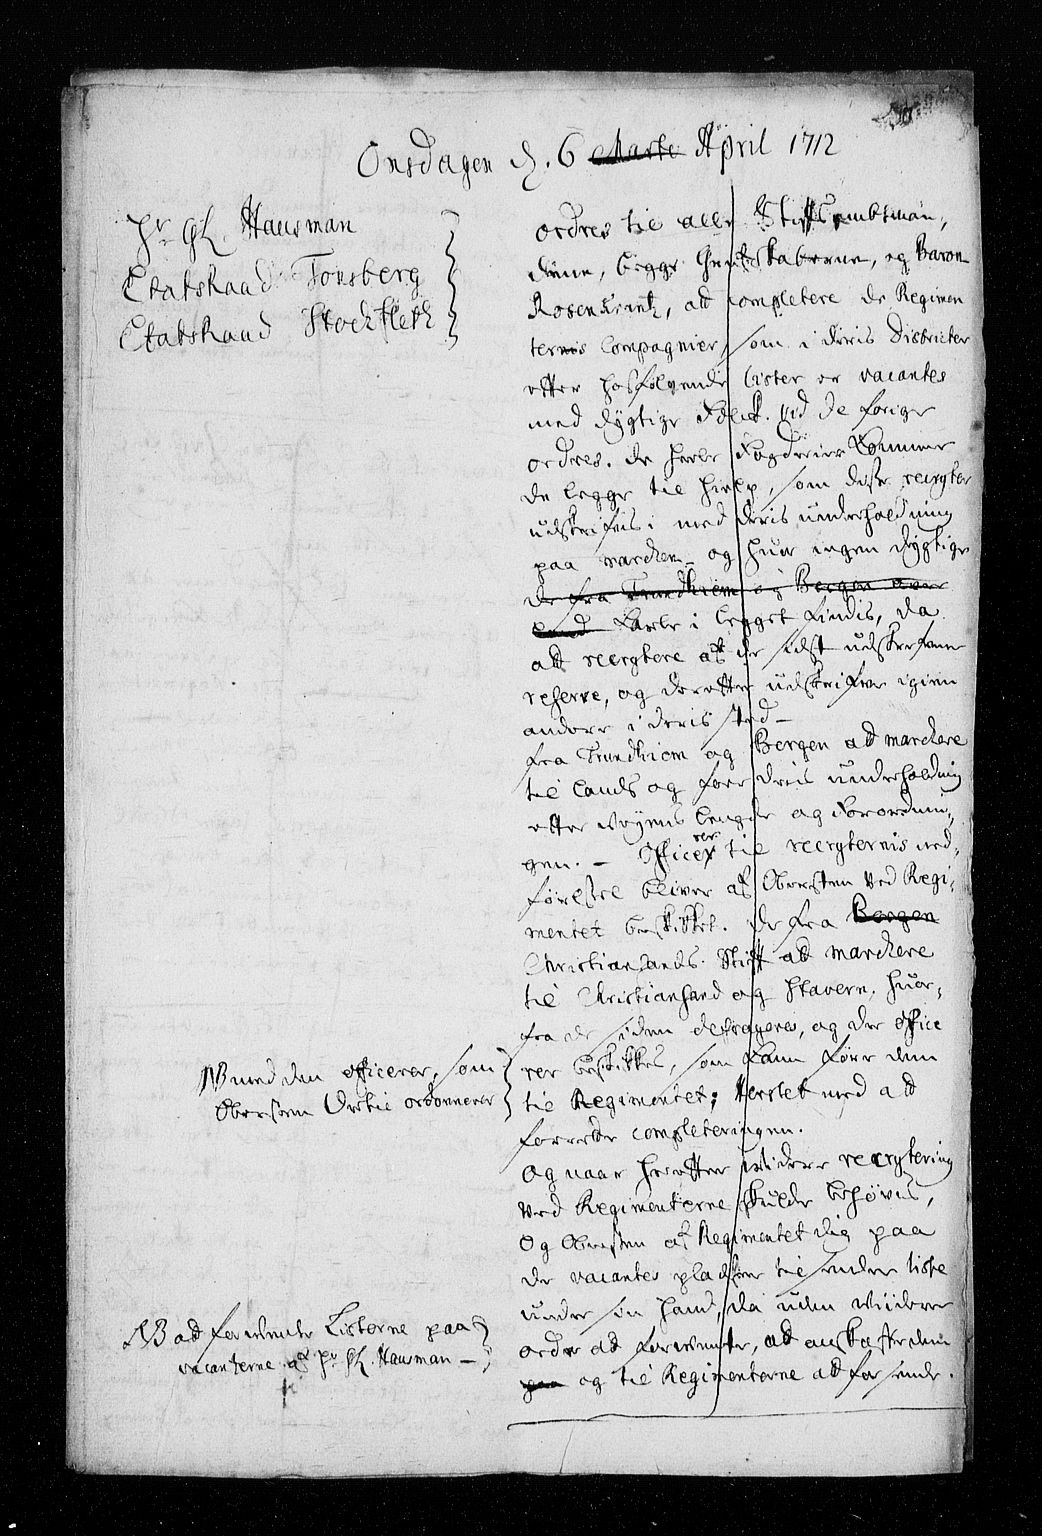 Onsdagen d. 6 Marti April 1712
Hr. GL. Hausman
Etatsraad Tonsberg
Etatsraad Stockfleth
ordres til alle Stifftsambtmæn,
dene, begge Grefskaberne, og Baron
Rosenkrantz, att completere de Regimen
ternis Compagnier, som i deris Districter
efter hosfølgende Lister er vacantes
med dygtige Folck. ved de forige
ordres. de heele Fogderier kommer
de legge til hielp, som disse recryter
udskrifvis i med deris underholdning
paa marchen - og huor ingen dygtige
de fra Trundhiem og Bergen over
land Karle i legget findis, da
att recrytere af de sidst udskrefvene
reserve, og derefter udskrifve igien
andere i deris sted -
fra Trundhiem og Bergen att marchere
til lands og for deris underholdning
efter Vejens lengde og Forordnin,
gen. - Officerer til recryternis ned,
førelsel bliver af Obersten ved Regi,
mentet beskikket. de fra Bergen
Christiansands. Stift att marchere
til Christiansand og Stavern, huor,
fra de siden desrageres, og der office
rer beskikkes, som kand føre dem
til Regimentet; Herslet med att
forrette completeringen.
NB med den officerer, som
Obersten dertil ordonnerer
Og naar herefter videre recrytering
ved Regimenterne skulde behøvis,
Og Obersten af Regimentet dig paa
de vacantes pladser tilsender liste
under sin haand, da uden videre
order att forvente, att anskaffe dem
paa og til Regimenterne att forsende.
NB att forvente Listerne paa
vacanterne af Hr. GL. Hausman -